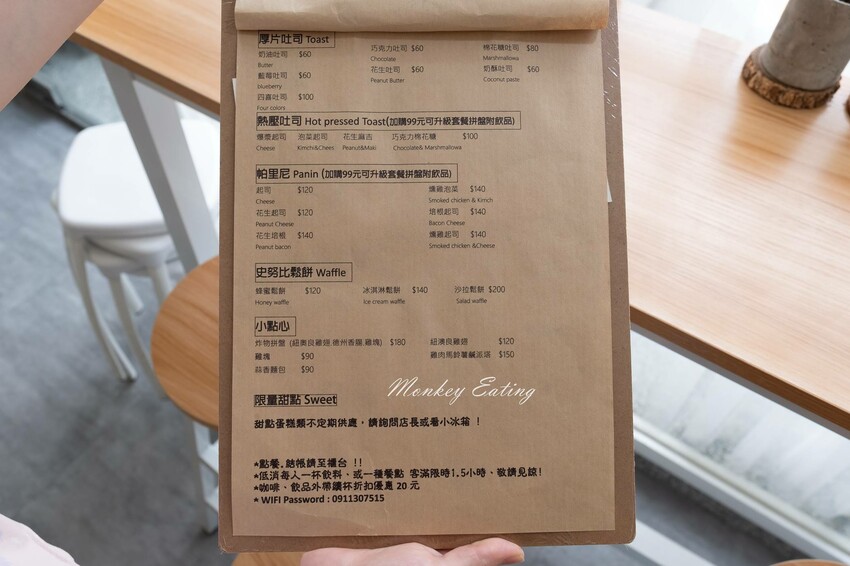 厚片吐司 Toast
奶油吐司 $60 巧克力吐司 $60 棉花糖吐司 $80
Butter Chocolate Marshmallowa
藍莓吐司 $60 花生吐司 $60 奶酥吐司 $60
blueberry Peanut Butter Coconut paste
四喜吐司 $100
Four colors
熱壓吐司 Hot pressed Toast(加購99元可升級套餐拼盤附飲品)
爆漿起司 泡菜起司 花生麻吉 巧克力棉花糖 $100
Cheese Kimchi&Chees Peanut&Maki Chocolate& Marshmallowa
帕里尼 Panin (加購99元可升級套餐拼盤附飲品)
起司 $120 燻雞泡菜 $140
Cheese Smoked chicken & Kimch
花生起司 $120 培根起司 $140
Peanut Cheese Bacon Cheese
花生培根 $140 燻雞起司 $140
Peanut bacon Smoked chicken &Cheese
史努比鬆餅 Waffle
蜂蜜鬆餅 $120 冰淇淋鬆餅 $140 沙拉鬆餅 $200
Honey waffle Ice cream waffle Salad waffle
小點心
炸物拼盤 (紐奧良雞翅,德州香腸,雞塊) $180 紐澳良雞翅 $120
雞塊 $90 雞肉馬鈴薯鹹派塔 $150
蒜香麵包 $90
Monkey Eating
限量甜點 Sweet
甜點蛋糕類不定期供應，請詢問店長或看小冰箱 !
*點餐.結帳請至櫃台 !!
*低消每人一杯飲料、或一種餐點 客滿限時1.5小時、敬請見諒!
*咖啡、飲品外帶續杯折扣優惠 20 元
* WIFI Password : 0911307515